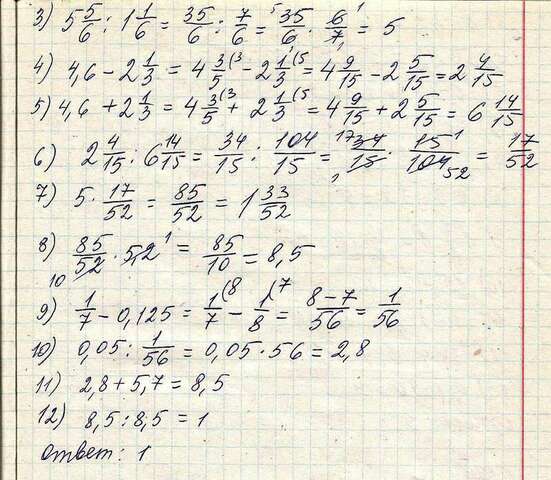 3) 5 5/6 : 1 1/6 = 35/6 : 7/6 = ⁵35/6 · 6/7 ¹₁ = 5
4) 4,6 - 2 1/3 = 4 3/5 ⁽³ - 2 1/3 ⁽⁵ = 4 9/15 - 2 5/15 = 2 4/15
5) 4,6 + 2 1/3 = 4 3/5 ⁽³ + 2 1/3 ⁽⁵ = 4 9/15 + 2 5/15 = 6 14/15
6) 2 4/15 : 6 14/15 = 34/15 : 104/15 = ¹⁷34/15 ₁ · 15 ¹/104 ₅₂ = 17/52
7) 5 · 17/52 = 85/52 = 1 33/52
8) 85/52 ₁₀ · 5,2 ¹ = 85/10 = 8,5
9) 1/7 - 0,125 = 1/7 ⁽⁸ - 1/8 ⁽⁷ = 8-7/56 = 1/56
10) 0,05 : 1/56 = 0,05 · 56 = 2,8
11) 2,8 + 5,7 = 8,5
12) 8,5 : 8,5 = 1
ответ: 1